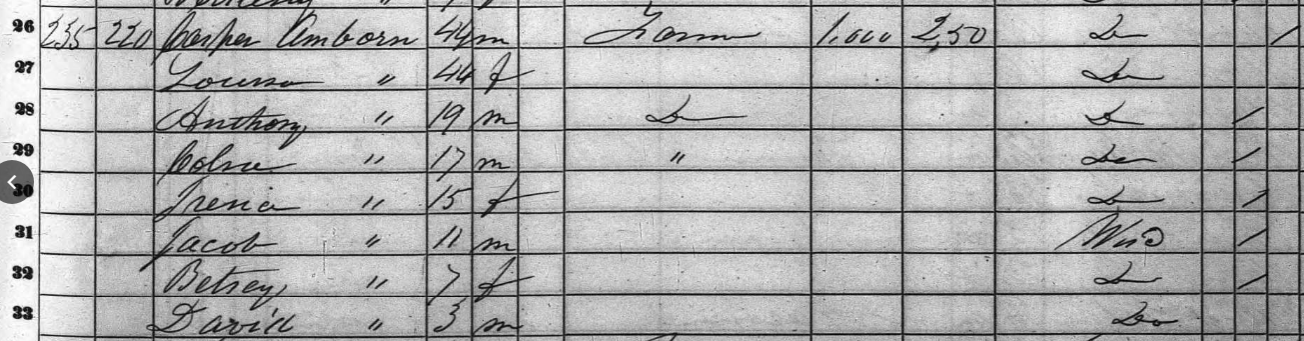 26 235 220 Casper Amborn 44 m Farm 1,000 2,50 Do /
27 Louisa " 44 f Do
28 Anthony " 19 m Do Do /
29 " 17 m " Do /
30 Irena " 15 f Do /
31 Jacob " 11 m Wis /
32 Betsey " 7 f Do /
33 David " 3 m Do